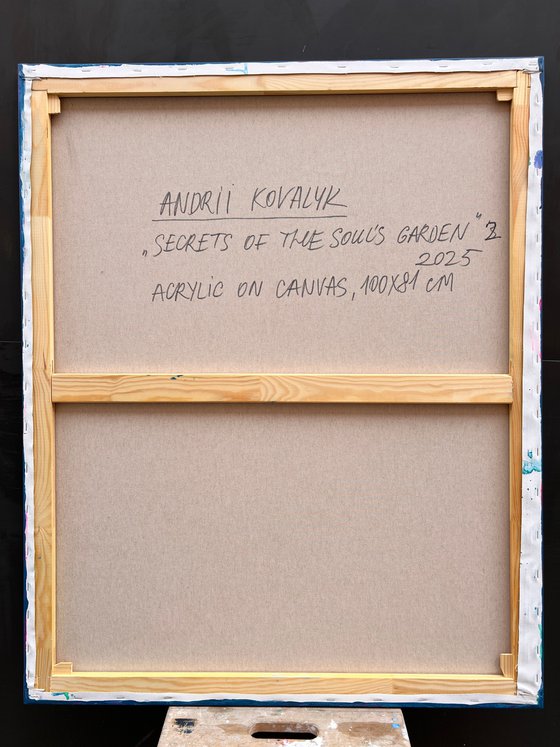 ANDRII KOVALYK
„SECRETS OF THE SOUL'S GARDEN" 2
2025
ACRYLIC ON CANVAS, 100X81 CM